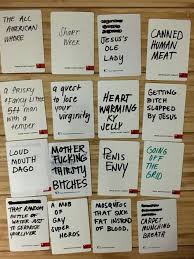 THE ALL
AMERICAN
WHORE
Short
Week
JESUS'S
OLE
LADY
CANNED
HUMAN
MEAT
a frisky
5ft man
with a
temper
a quest
to lose
your
virginity
HEART
WARMING
KY
JELLY
GETTING
BITCH
SLAPPED
BY JESUS
LOUD
MOUTH
DAGO
MOTHER
FUCKING
THIRSTY
BITCHES
PENIS
ENVY
GOING
OFF
THE
GRID
THAT RANDOM
BOTTLE OF
WATER JUST
TO
A MOB
OF
GAY
SUPER
HEROS
MOSQUITOS
THAT SUCK
FAT INSTEAD
OF BLOOD.
CARPET
MUNCHING
BREATH